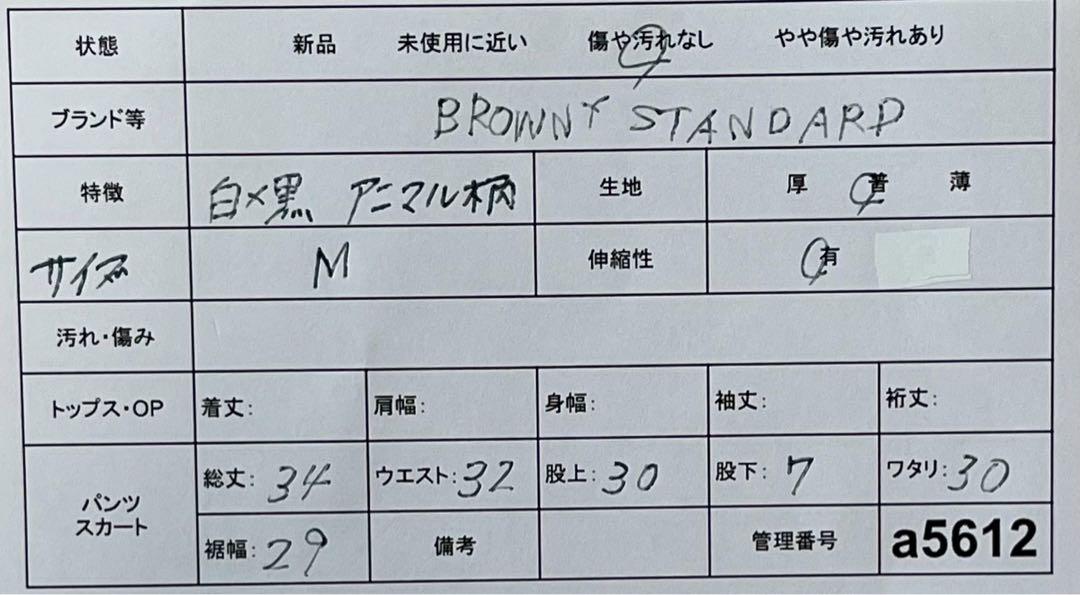 状態 新品 未使用に近い 傷や汚れなし やや傷や汚れあり
ブランド等 BROWNY STANDARD
特徴 白×黒 アニマル柄 生地 厚 普 薄
サイズ M 伸縮性 有
汚れ・傷み
トップス・OP 着丈: 肩幅: 身幅: 袖丈: 裄丈:
パンツ
スカート
総丈: 34 ウエスト: 32 股上: 30 股下: 7 ワタリ: 30
裾幅: 29 備考 管理番号 a5612